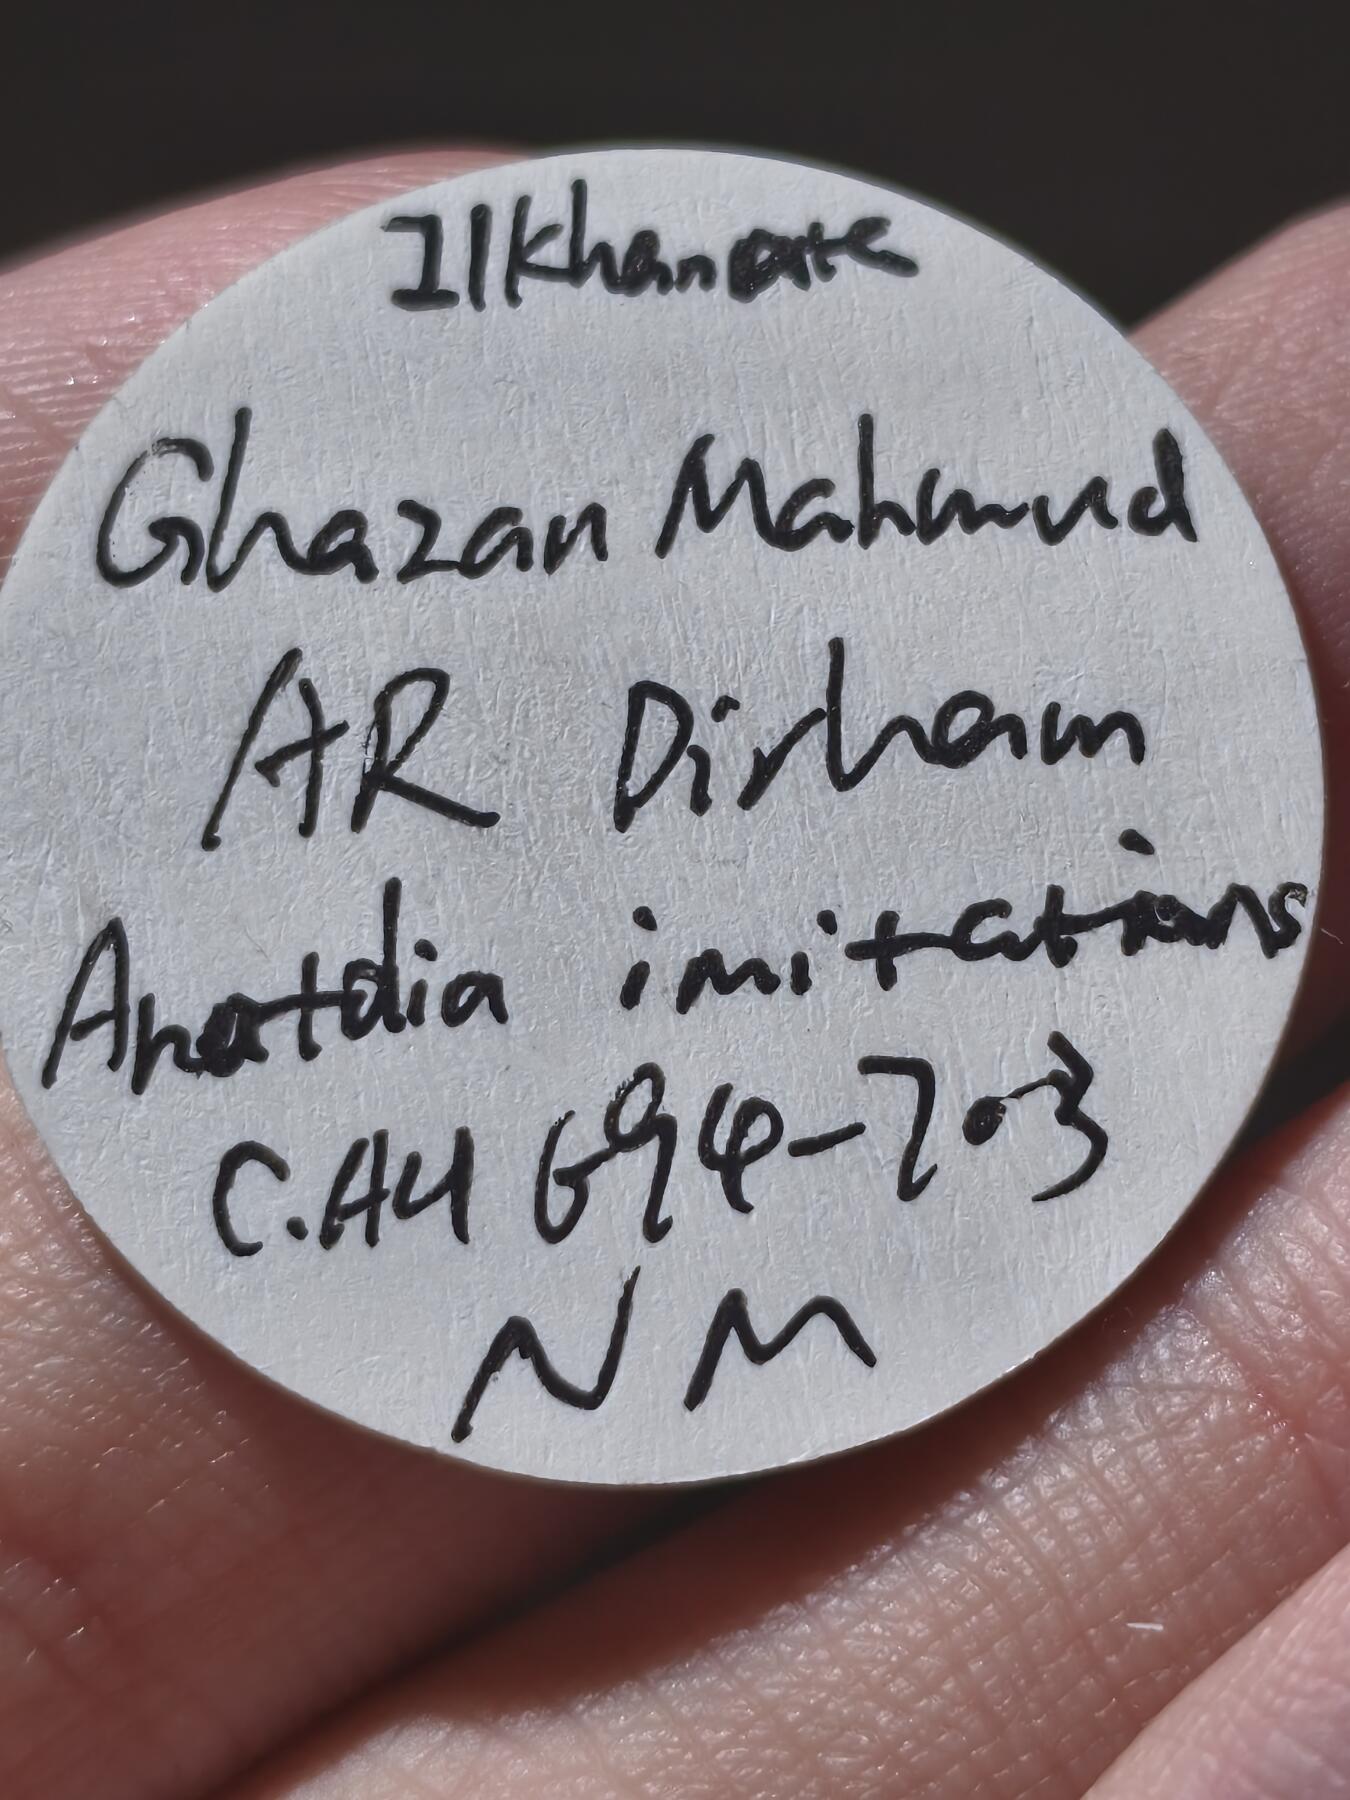 Ilkhanate
Ghazan Mahmud
AR Dirham
Anatolia imitations
C.AH 694-703
NM